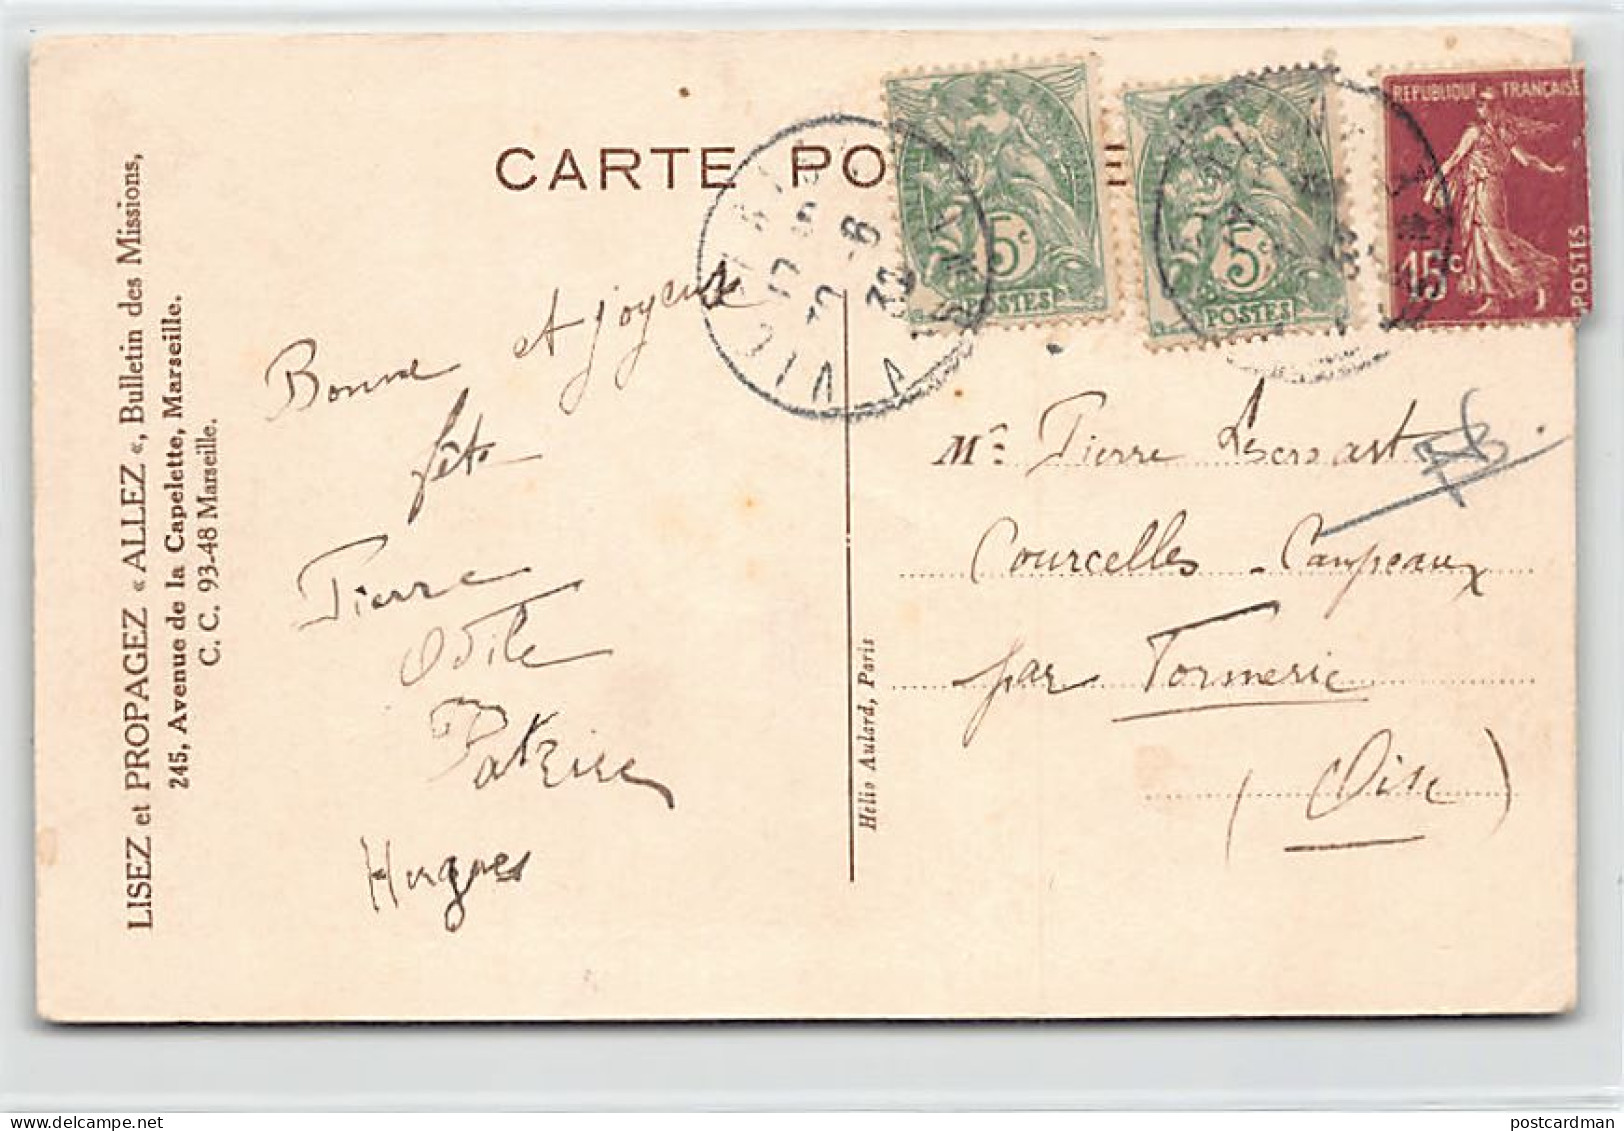 CARTE PO
LISEZ et PROPAGEZ « ALLEZ «, Bulletin des Missions,
245, Avenue de la Capelette, Marseille.
C. C. 93-48 Marseille.
Bonne et joyeuse
fête
Pierre
Odile
Patrice
Hugues
Hélio Aulard, Paris
5c
POSTES
5c
POSTES
REPUBLIQUE FRANÇAISE
15c
POSTES
Mr Pierre
Courcelles - Campeaux
par Formerie
(Oise)
postcardman